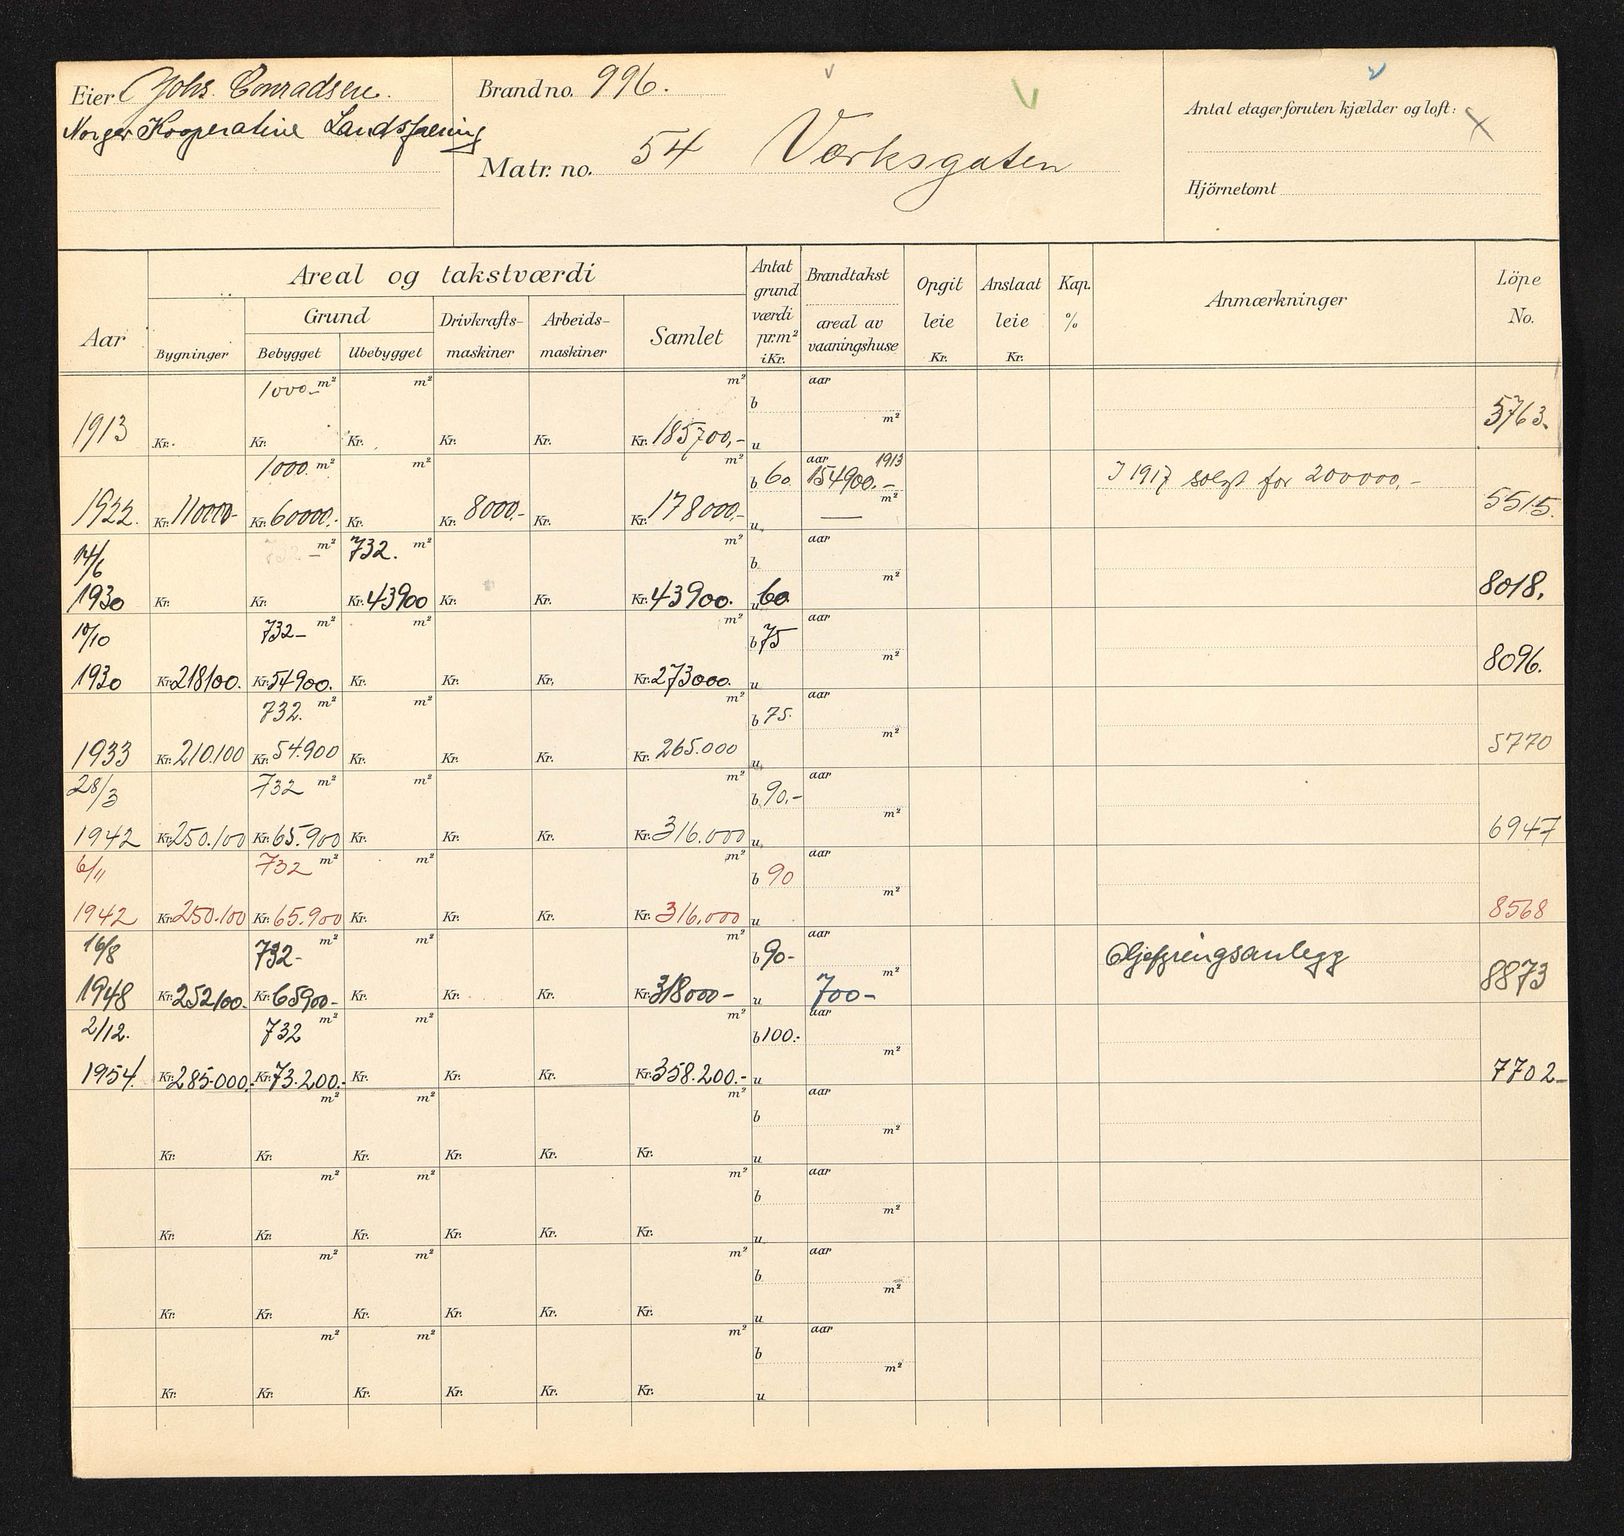 Eier Johs. Conradsen.
Norges Kooperative Landsforening
Brand no. 996.
Matr. no. 54 Værksgaten
Antal etager foruten kjælder og loft:
Hjörnetomt
Aar
Areal og takstværdi
Bygninger
Grund
Bebygget Ubebygget
Drivkrafts-
maskiner
Arbeids-
maskiner
Samlet
Antat
grund
værdi
pr.m²
i Kr.
Brandtakst
areal av
vaaningshuse
Opgit
leie
Kr.
Anslaat
leie
Kr.
Kap.
%
Anmærkninger
Löpe
No.
1000.- m² m² m² aar
b
m²
1913 Kr. Kr. Kr. Kr. Kr. Kr. 185700,- u 5763.
1000. m² m² m² b 60. aar 1913
154900.- I 1917 solgt for 200000,-
m²
1922. Kr. 110000- Kr. 60000,- Kr. Kr. 8000,- Kr. Kr. 178000,- u. — 5515.
14/6 732 - m² 732. m² m² b. aar
m²
1930 Kr. Kr. Kr. 43900 Kr. Kr. Kr. 43900. u 60. 8018.
10/10 732- m² m² m² b 75 aar
m²
1930 Kr. 218100. Kr. 54900. Kr. Kr. Kr. Kr. 273000. u 8096.
732. m² m² m² b 75. aar
m²
1933 Kr. 210.100 Kr. 54.900 Kr. Kr. Kr. Kr. 265.000 u. 5770
28/3 732 m² m² m² b. 90.- aar
m²
1942 Kr. 250.100 Kr. 65.900 Kr. Kr. Kr. Kr. 316.000 u. 6947
6/11 732 m² m² m² b 90 aar
m²
1942 Kr. 250.100 Kr. 65.900 Kr. Kr. Kr. Kr. 316.000 u 8568
16/8 732- m² m² m² b 90- aar Oljefyringsanlegg
m²
1948 Kr. 252100.- Kr. 65900- Kr. Kr. Kr. Kr. 318000- u 700- 8873
2/12. 732 m² m² m² b 100.- aar
m²
1954. Kr. 285.000.- Kr. 73.200.- Kr. Kr. Kr. Kr. 358.200.- u 7702-
m² m² m² aar
b
m²
Kr. Kr. Kr. Kr. Kr. Kr. u
m² m² m² aar
b
m²
Kr. Kr. Kr. Kr. Kr. Kr. u
m² m² m² aar
b
m²
Kr. Kr. Kr. Kr. Kr. Kr. u
m² m² m² aar
b
m²
Kr. Kr. Kr. Kr. Kr. Kr. u